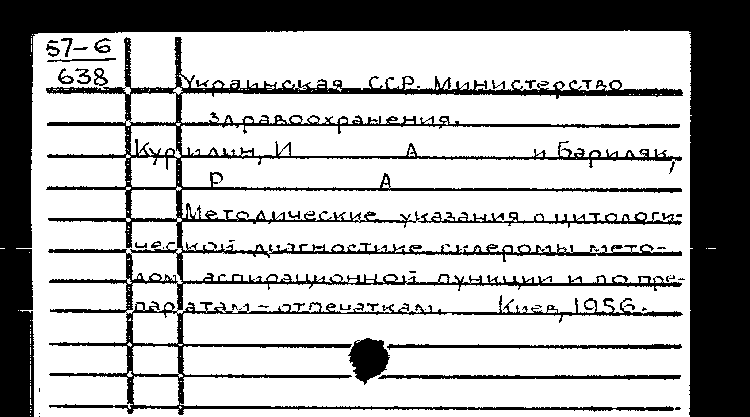 57-6
638
Украинская ССР. Министерство
здравоохранения.
Курилин, И А и Бариляк,
Р А
Методические указания о цитологи-
ческой диагностике склеромы мето-
дом аспирационной пункции и по пре-
паратам-отпечаткам. Киев, 1956.